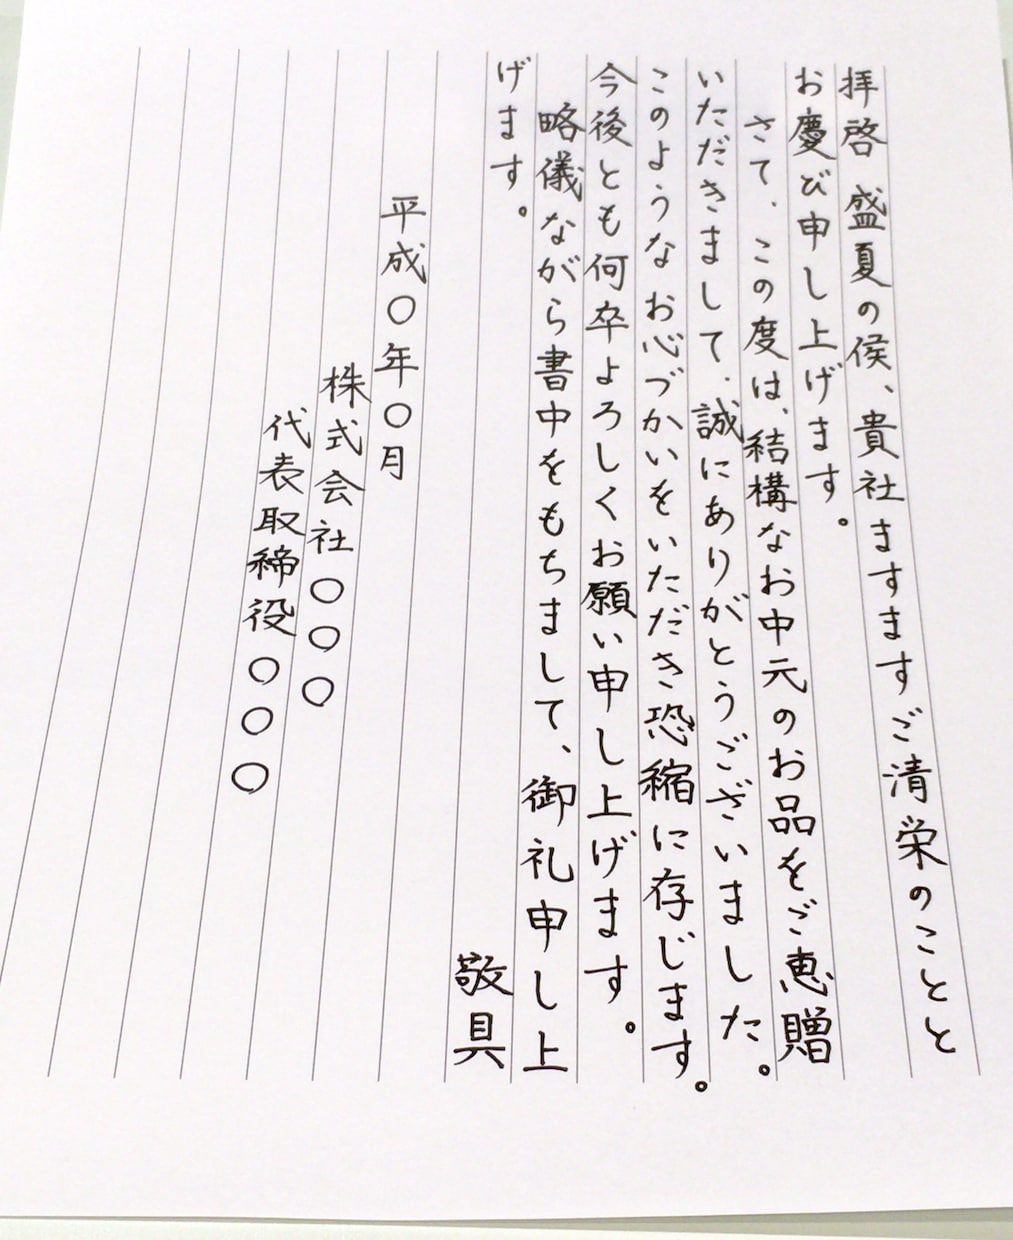 拝啓 盛夏の候、貴社ますますご清栄のことと
お慶び申し上げます。
さて、この度は、結構なお中元のお品をご恵贈
いただきまして、誠にありがとうございました。
このようなお心づかいをいただき恐縮に存じます。
今後とも何卒よろしくお願い申し上げます。
略儀ながら書中をもちまして、御礼申し上
げます。
敬具
平成〇年〇月
株式会社〇〇〇
代表取締役〇〇〇